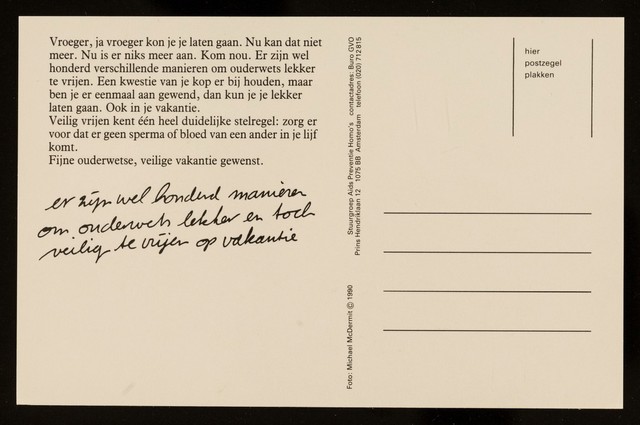 Vroeger, ja vroeger kon je je laten gaan. Nu kan dat niet
meer. Nu is er niks meer aan. Kom nou. Er zijn wel
honderd verschillende manieren om ouderwets lekker
te vrijen. Een kwestie van je kop er bij houden, maar
ben je er eenmaal aan gewend, dan kun je je lekker
laten gaan. Ook in je vakantie.
Veilig vrijen kent één heel duidelijke stelregel: zorg er
voor dat er geen sperma of bloed van een ander in je lijf
komt.
Fijne ouderwetse, veilige vakantie gewenst.
er zijn wel honderd manieren
om ouderwets lekker en toch
veilig te vrijen op vakantie
Stuurgroep Aids Preventie Homo's contactadres: Buro GVO
Prins Hendriklaan 12 1075 BB Amsterdam telefoon (020) 712 815
Foto: Michael McDermit © 1990
hier
postzegel
plakken